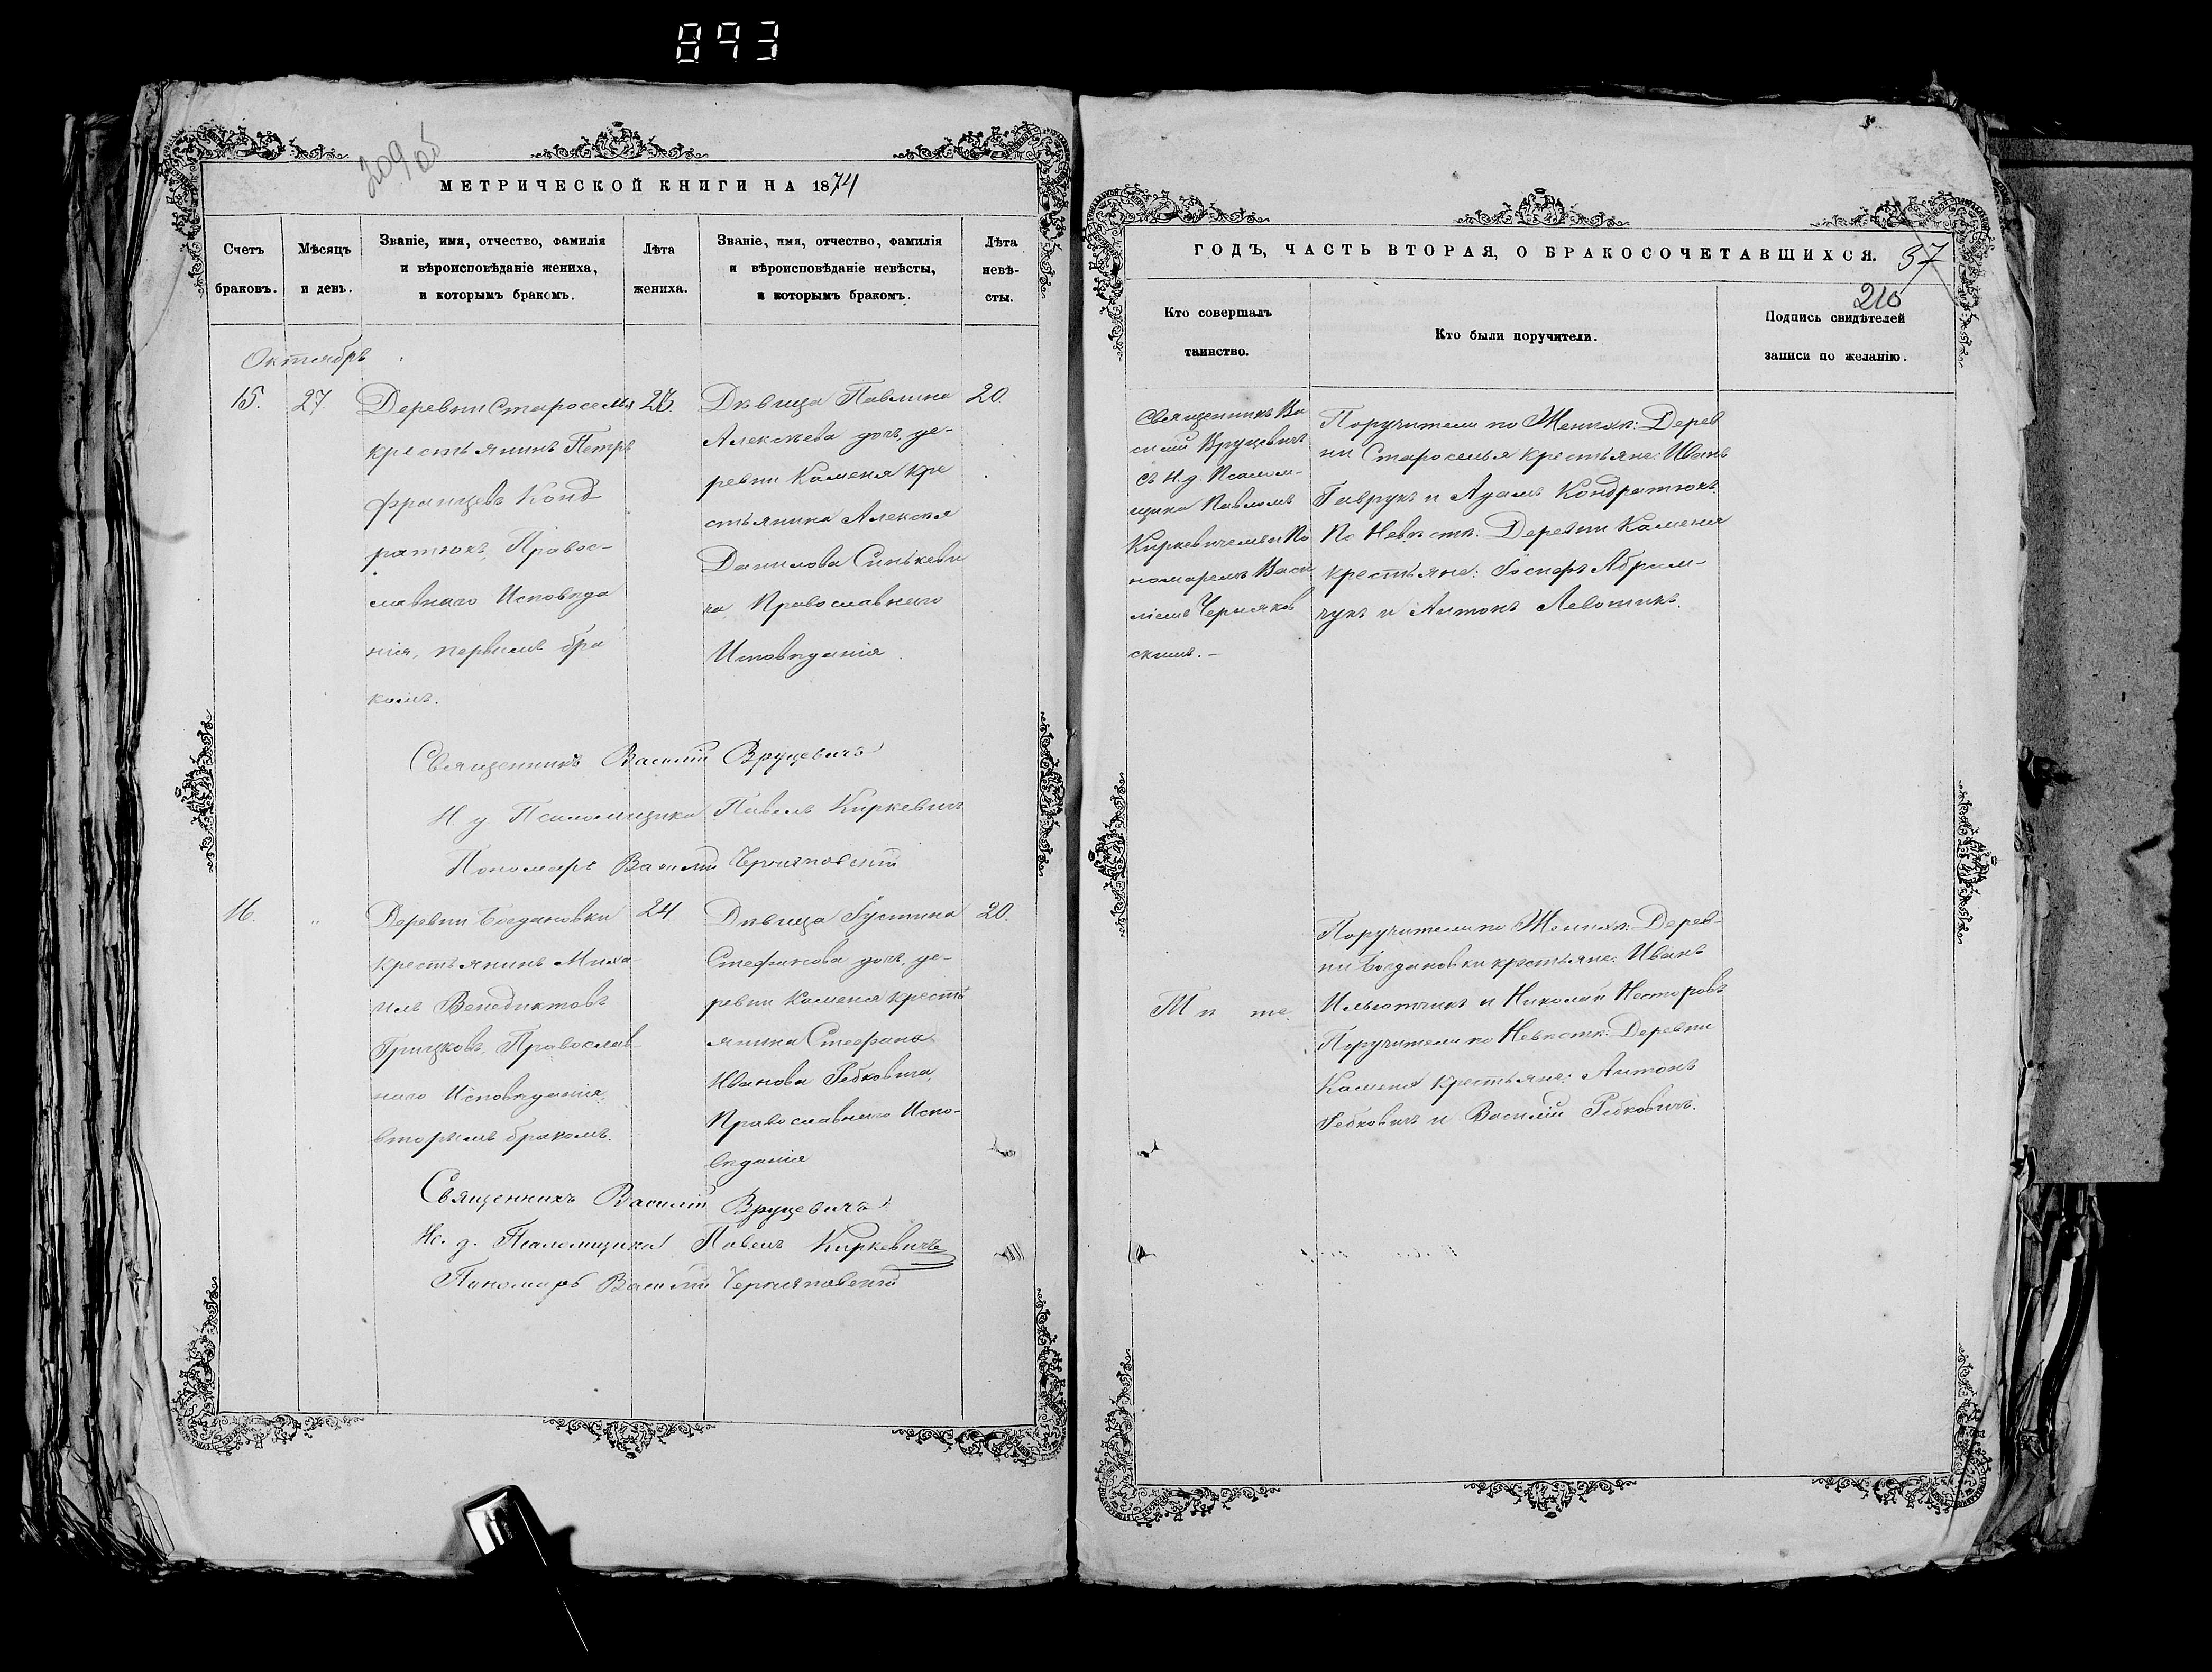 893
209 об
МЕТРИЧЕСКОЙ КНИГИ НА 1874
Счетъ браковъ.
Мѣсяцъ и день.
Званіе, имя, отчество, фамилія
и вѣроисповѣданіе жениха,
и которымъ бракомъ.
Лѣта жениха.
Званіе, имя, отчество, фамилія
и вѣроисповѣданіе невѣсты,
и которымъ бракомъ.
Лѣта невѣ-
сты.
Октябрь
15.
27.
Деревни Староселья
крестьянинъ Петръ
Францевъ Конд
ратюкъ, Правос-
лавнаго Исповѣда
нія, первымъ бра
комъ.
Дѣвица Павлина
Алексѣева дочь, де-
ревни Каменя кре
стьянина Алексѣя
Данилова Синькеви
ча, Православнаго
Исповѣданія
20.
Священникъ Василій Вруцевичъ
И. д. Псаломщика Павелъ Киркевичъ
Пономарь Василій Черняковскій
16.
"
Деревни Богдановки
крестьянинъ Миха-
илъ Венедиктовъ
Грицковъ, Православ-
наго Исповѣданія,
вторымъ бракомъ.
24.
Дѣвица Густина
Стефанова дочь, де-
ревни Каменя кресть
янина Стефана
Иванова Рабковича,
Православнаго Испо-
вѣданія
20.
Священникъ Василій Вруцевичъ
Ис. д. Псаломщика Павелъ Киркевичъ
Пономарь Василій Черняковскій
ГОДЪ, ЧАСТЬ ВТОРАЯ, О БРАКОСОЧЕТАВШИХСЯ.
37
210
Кто совершалъ
таинство.
Кто были поручители.
Подпись свидѣтелей
записи по желанію.
Священникъ Ва
силій Вруцевичъ
съ И. д. Псалом-
щика Павломъ
Киркевичемъ и По
номаремъ Васи
ліемъ Черняков
скимъ. -
Поручители по Женихѣ: Дерев
ни Староселья крестьяне: Иванъ
Гаврукъ и Адамъ Кондратюкъ.
По Невѣстѣ: Деревни Каменя
крестьяне: Іосифъ Абрам-
чукъ и Антонъ Левошикъ.
Тѣ же.
Поручители по Женихѣ: Дерев-
ни Богдановки крестьяне: Иванъ
Ильютчикъ и Николай Несторовъ
Поручители по Невѣстѣ: Деревни
Каменя крестьяне: Антонъ
Рабковичъ и Василій Рабковичъ.